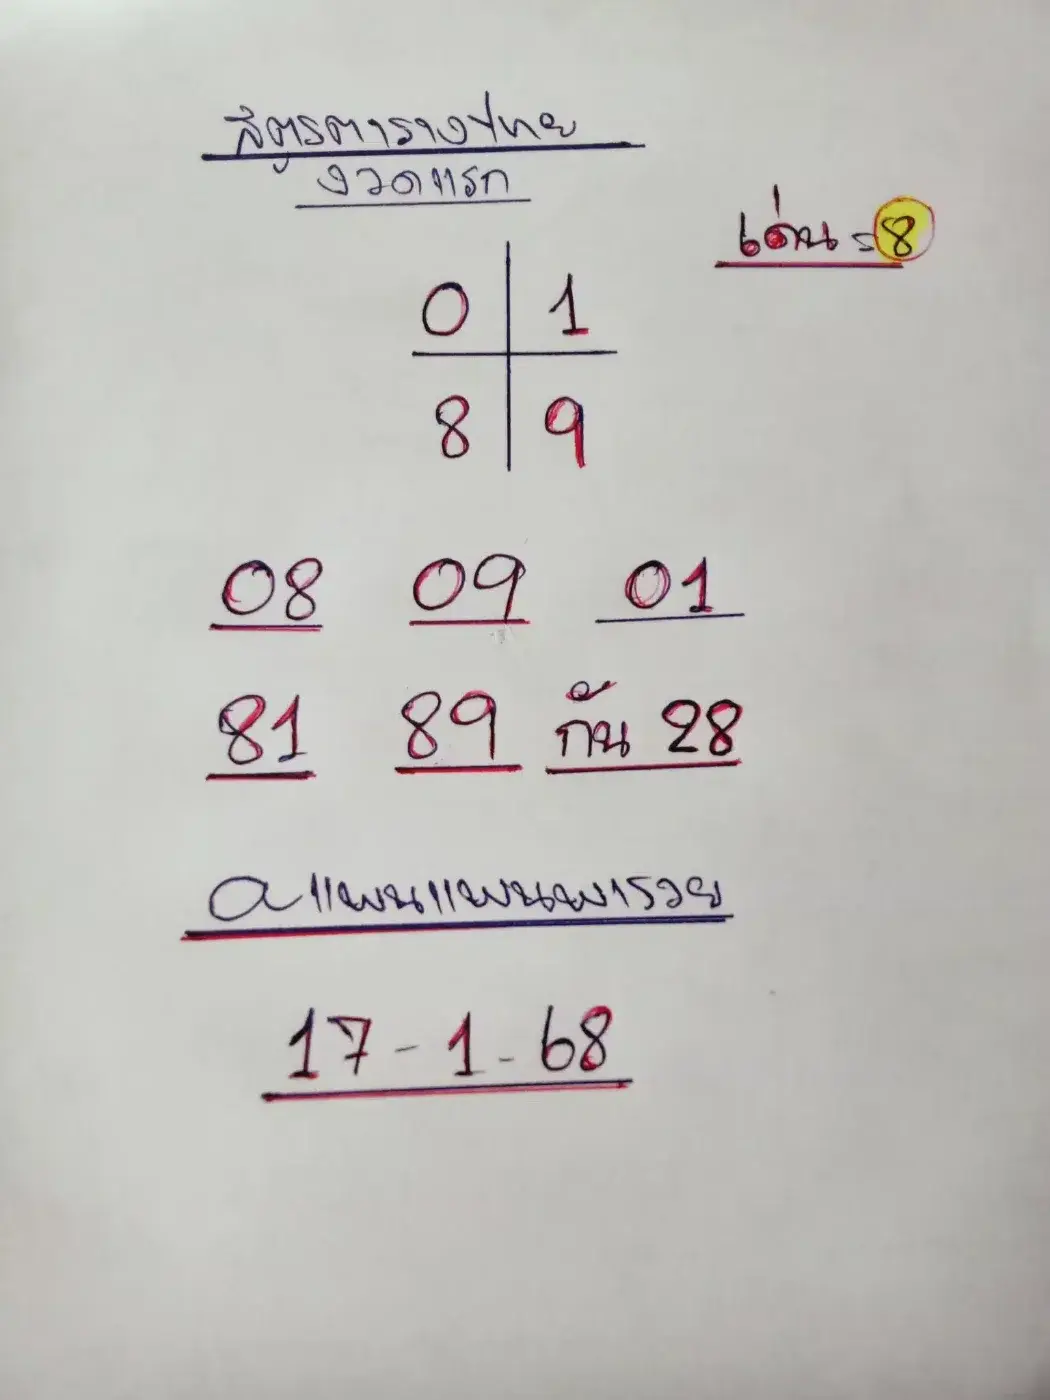 สูตรตารางไทย
งวดแรก
เด่น = 8
0 1
8 9
08 09 01
81 89 กัน 28
แพนแพนพารวย
17-1-68